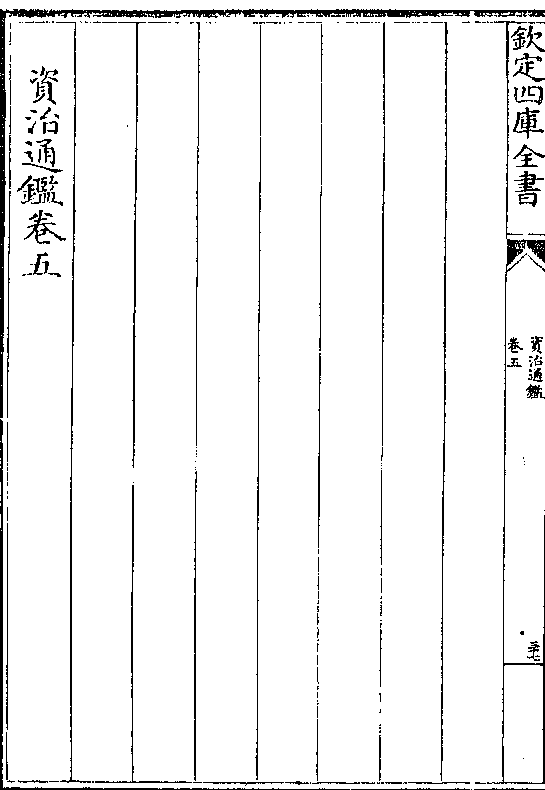 欽定四庫全書
資治通鑑
卷五
三十七
資治通鑑卷五